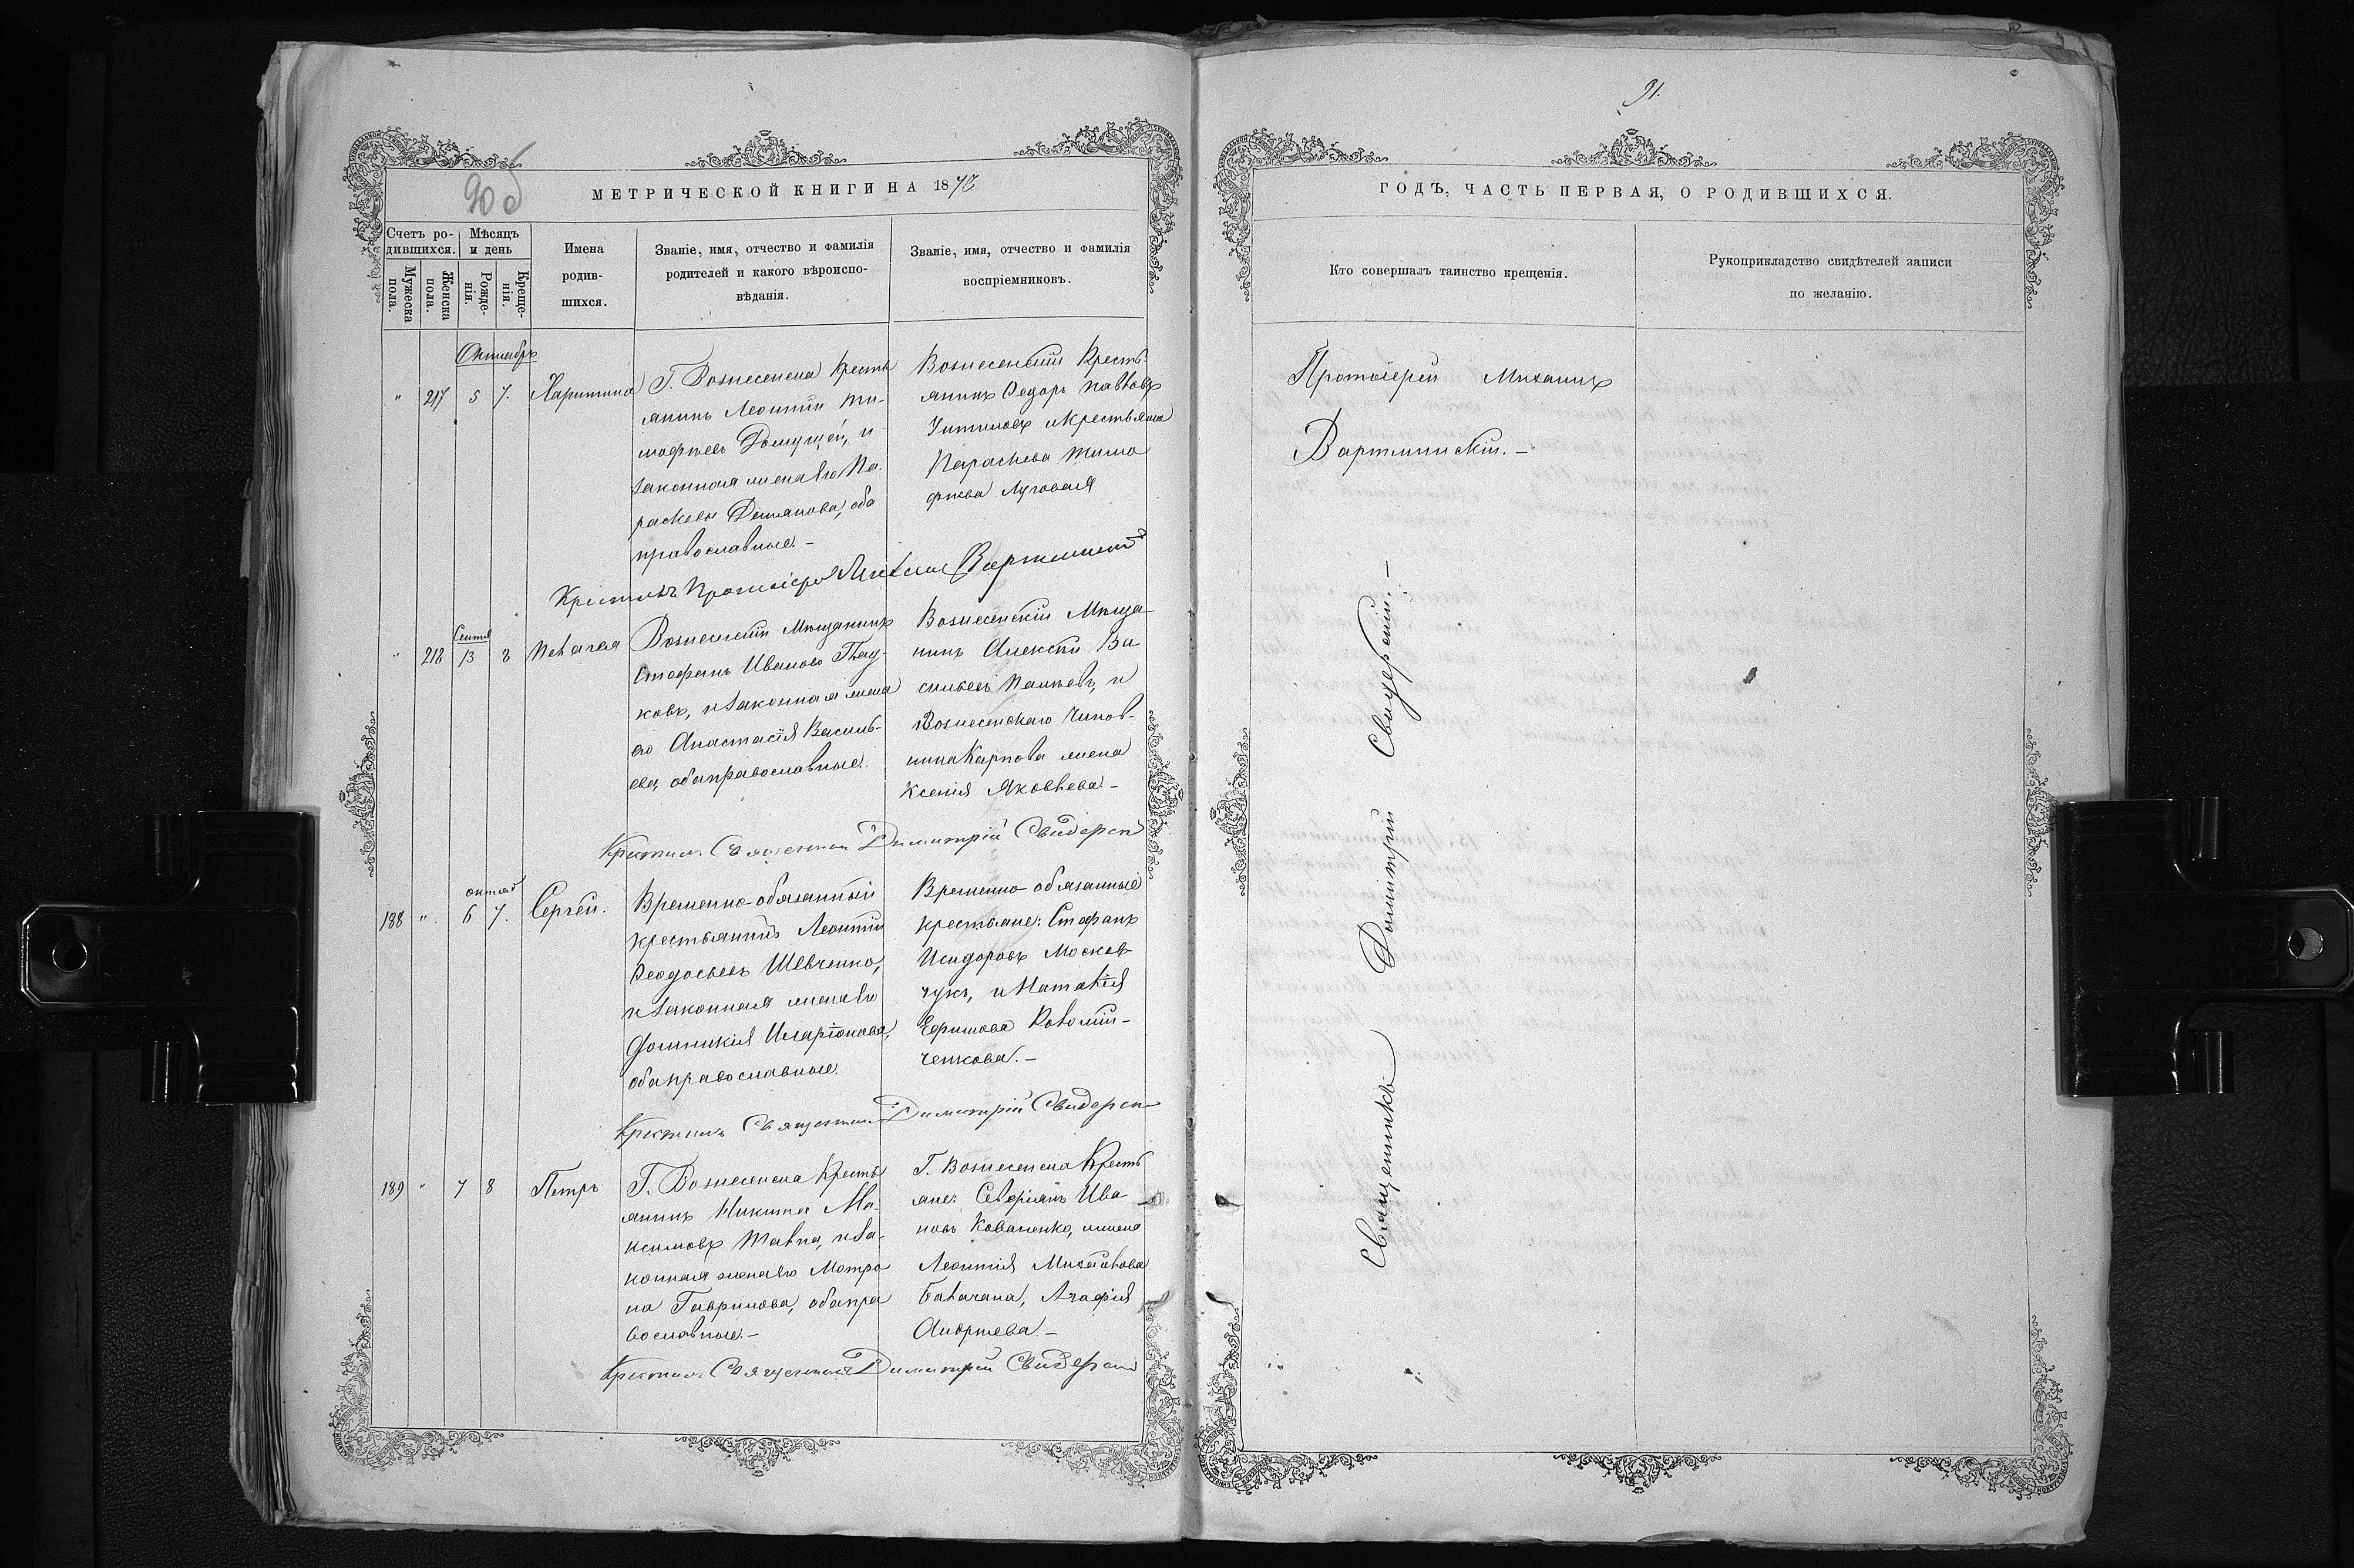 90 об
МЕТРИЧЕСКОЙ КНИГИ НА 1872
Счетъ ро-
дившихся.
Мѣсяцъ
и день
Имена
родив-
шихся.
Званіе, имя, отчество и фамилія
родителей и какого вѣроиспо-
вѣданія.
Званіе, имя, отчество и фамилія
воспріемниковъ.
Мужеска
пола.
Женска
пола.
Рожде-
нія.
Креще-
нія.
Октябрь
" 217 5 7. Харитина
Г. Вознесенска Кресть
янинъ Леонтій Ти-
мофѣевъ Домущей, и
законная жена его Па-
раскева Демянова, оба
православные. –
Вознесенскій Кресть-
янинъ Ѳедоръ Павловъ
и Крестьянка
Параскева Тимо
фѣева Луговая
Крестилъ Протоіерей Михаилъ Вартминскій
Сентяб
" 218 13 8 Пелагея
Вознесенскій Мѣщанинъ
Стефанъ Ивановъ Глад-
ковъ, и законная жена
его Анастасія Василь-
ева, оба православные.
Вознесенскій Мѣща-
нинъ Алексѣй Ва
сильевъ Палѣевъ, и
Вознесенскаго Чинов-
ника Карпова жена
Ксенія Яковлева –
Крестилъ Священникъ Димитрій Свидерскій
октяб
188 " 6 7. Сергѣй.
Временно-обязанный
крестьянинъ Леонтій
Ѳеодосьевъ Шевченко,
и законная жена его
Домникія Иларіонова,
оба православные.
Временно-обязанные
крестьяне: Стефанъ
Исидоровъ Москов-
чукъ, и Наталія
Ефимова Коломій-
ченкова. –
Крестилъ Священникъ Димитрій Свидерскій
189 " 7 8 Петръ
Г. Вознесенска Кресть
янинъ Никита Ма-
ксимовъ Шавла, и за-
конная жена его Матро
на Гаврилова, оба пра
вославные. –
Г. Вознесенска Кресть
яне: Севѣріянъ Ива
новъ Коваленко, и жена
Леонтія Михайлова
Балагана, Агафія
Андрѣева. –
Крестилъ Священникъ Димитрій Свидерскій
91.
ГОДЪ, ЧАСТЬ ПЕРВАЯ, О РОДИВШИХСЯ.
Кто совершалъ таинство крещенія.
Рукоприкладство свидѣтелей записи
по желанію.
Протоіерей Михаилъ
Вартминскій. –
Священникъ Димитрій Свидерскій. –